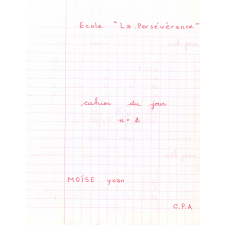 Ecole "La Persévérance"
cahier du jour
n° 2
MOÏSE yoan
C.P.A